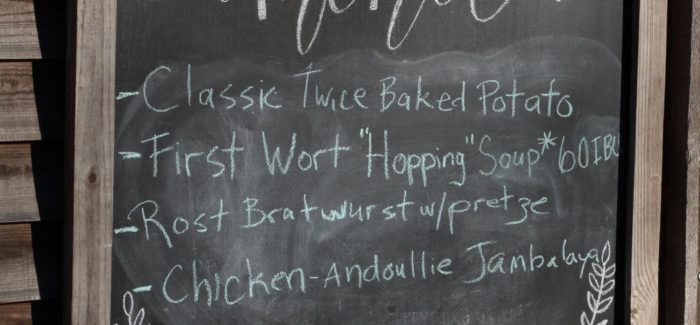 -Classic Twice Baked Potato
-First Wort "Hopping" Soup*60IBU
-Rost Bratwurst w/pretze
-Chicken-Andoullie Jambalaya